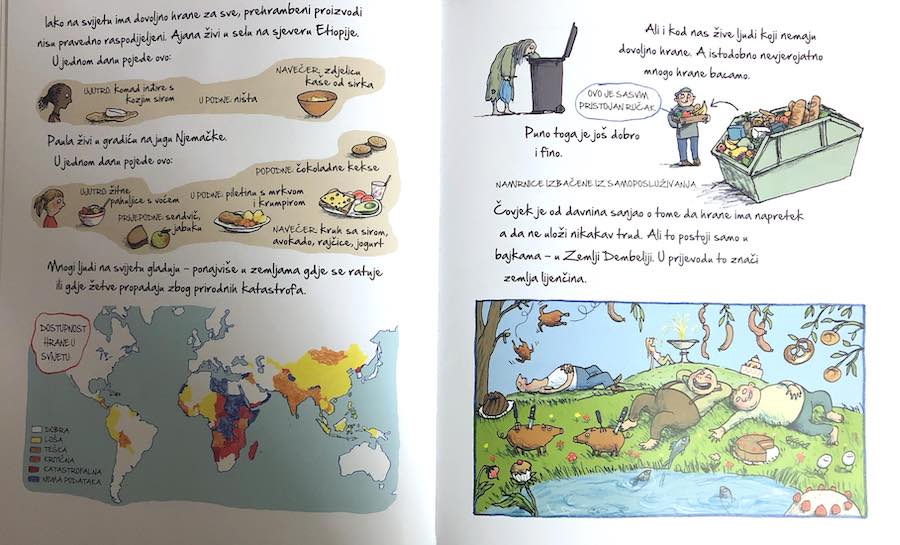 Iako na svijetu ima dovoljno hrane za sve, prehrambeni proizvodi
nisu pravedno raspodijeljeni. Ajana živi u selu na sjeveru Etiopije.
U jednom danu pojede ovo:
UJUTRO: komad inđire s
kozjim sirom
U PODNE: ništa
NAVEČER: zdjelicu
kaše od sirka
Paula živi u gradiću na jugu Njemačke.
U jednom danu pojede ovo:
UJUTRO: žitne
pahuljice s voćem
PRIJEPODNE: sendvič,
jabuku
U PODNE: piletinu s mrkvom
i krumpirom
POPODNE: čokoladne kekse
NAVEČER: kruh sa sirom,
avokado, rajčice, jogurt
Mnogi ljudi na svijetu gladuju – ponajviše u zemljama gdje se ratuje
ili gdje žetve propadaju zbog prirodnih katastrofa.
DOSTUPNOST
HRANE U
SVIJETU
DOBRA
LOŠA
TEŠKA
KRITIČNA
KATASTROFALNA
NEMA PODATAKA
Ali i kod nas žive ljudi koji nemaju
dovoljno hrane. A istodobno nevjerojatno
mnogo hrane bacamo.
OVO JE SASVIM
PRISTOJAN RUČAK.
Puno toga je još dobro
i fino.
NAMIRNICE IZBAČENE IZ SAMOPOSLUŽIVANJA
Čovjek je od davnina sanjao o tome da hrane ima napretek
a da ne uloži nikakav trud. Ali to postoji samo u
bajkama – u Zemlji Dembeliji. U prijevodu to znači
zemlja lijenčina.